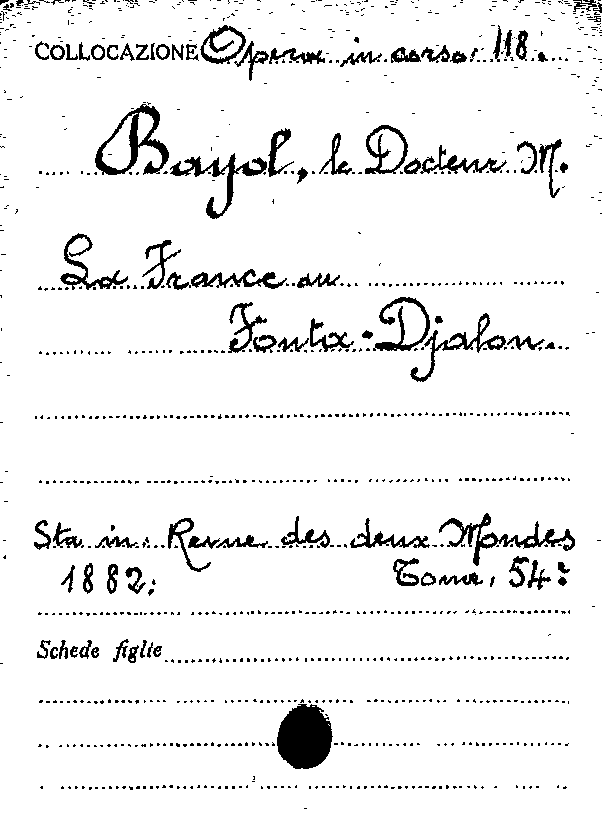 COLLOCAZIONE Opera in corso. 118.
Bayol, le Docteur M.
La France au
Fonta-Djalon.
Sta in: Revue des deux Mondes
1882: Tome, 54:
Schede figlie